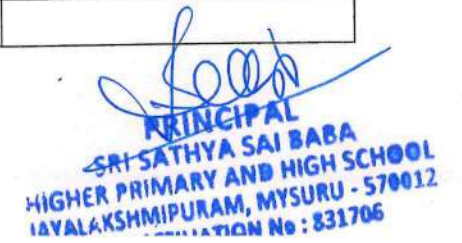 PRINCIPAL
SRI SATHYA SAI BABA
HIGHER PRIMARY AND HIGH SCHOOL
JAYALAKSHMIPURAM, MYSURU - 570012
AFFILIATION No : 831706